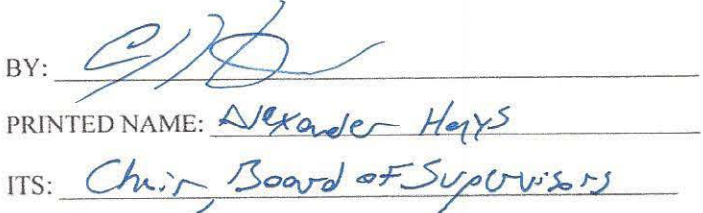 BY:
PRINTED NAME: Alexander Hays
ITS: Chair, Board of Supervisors